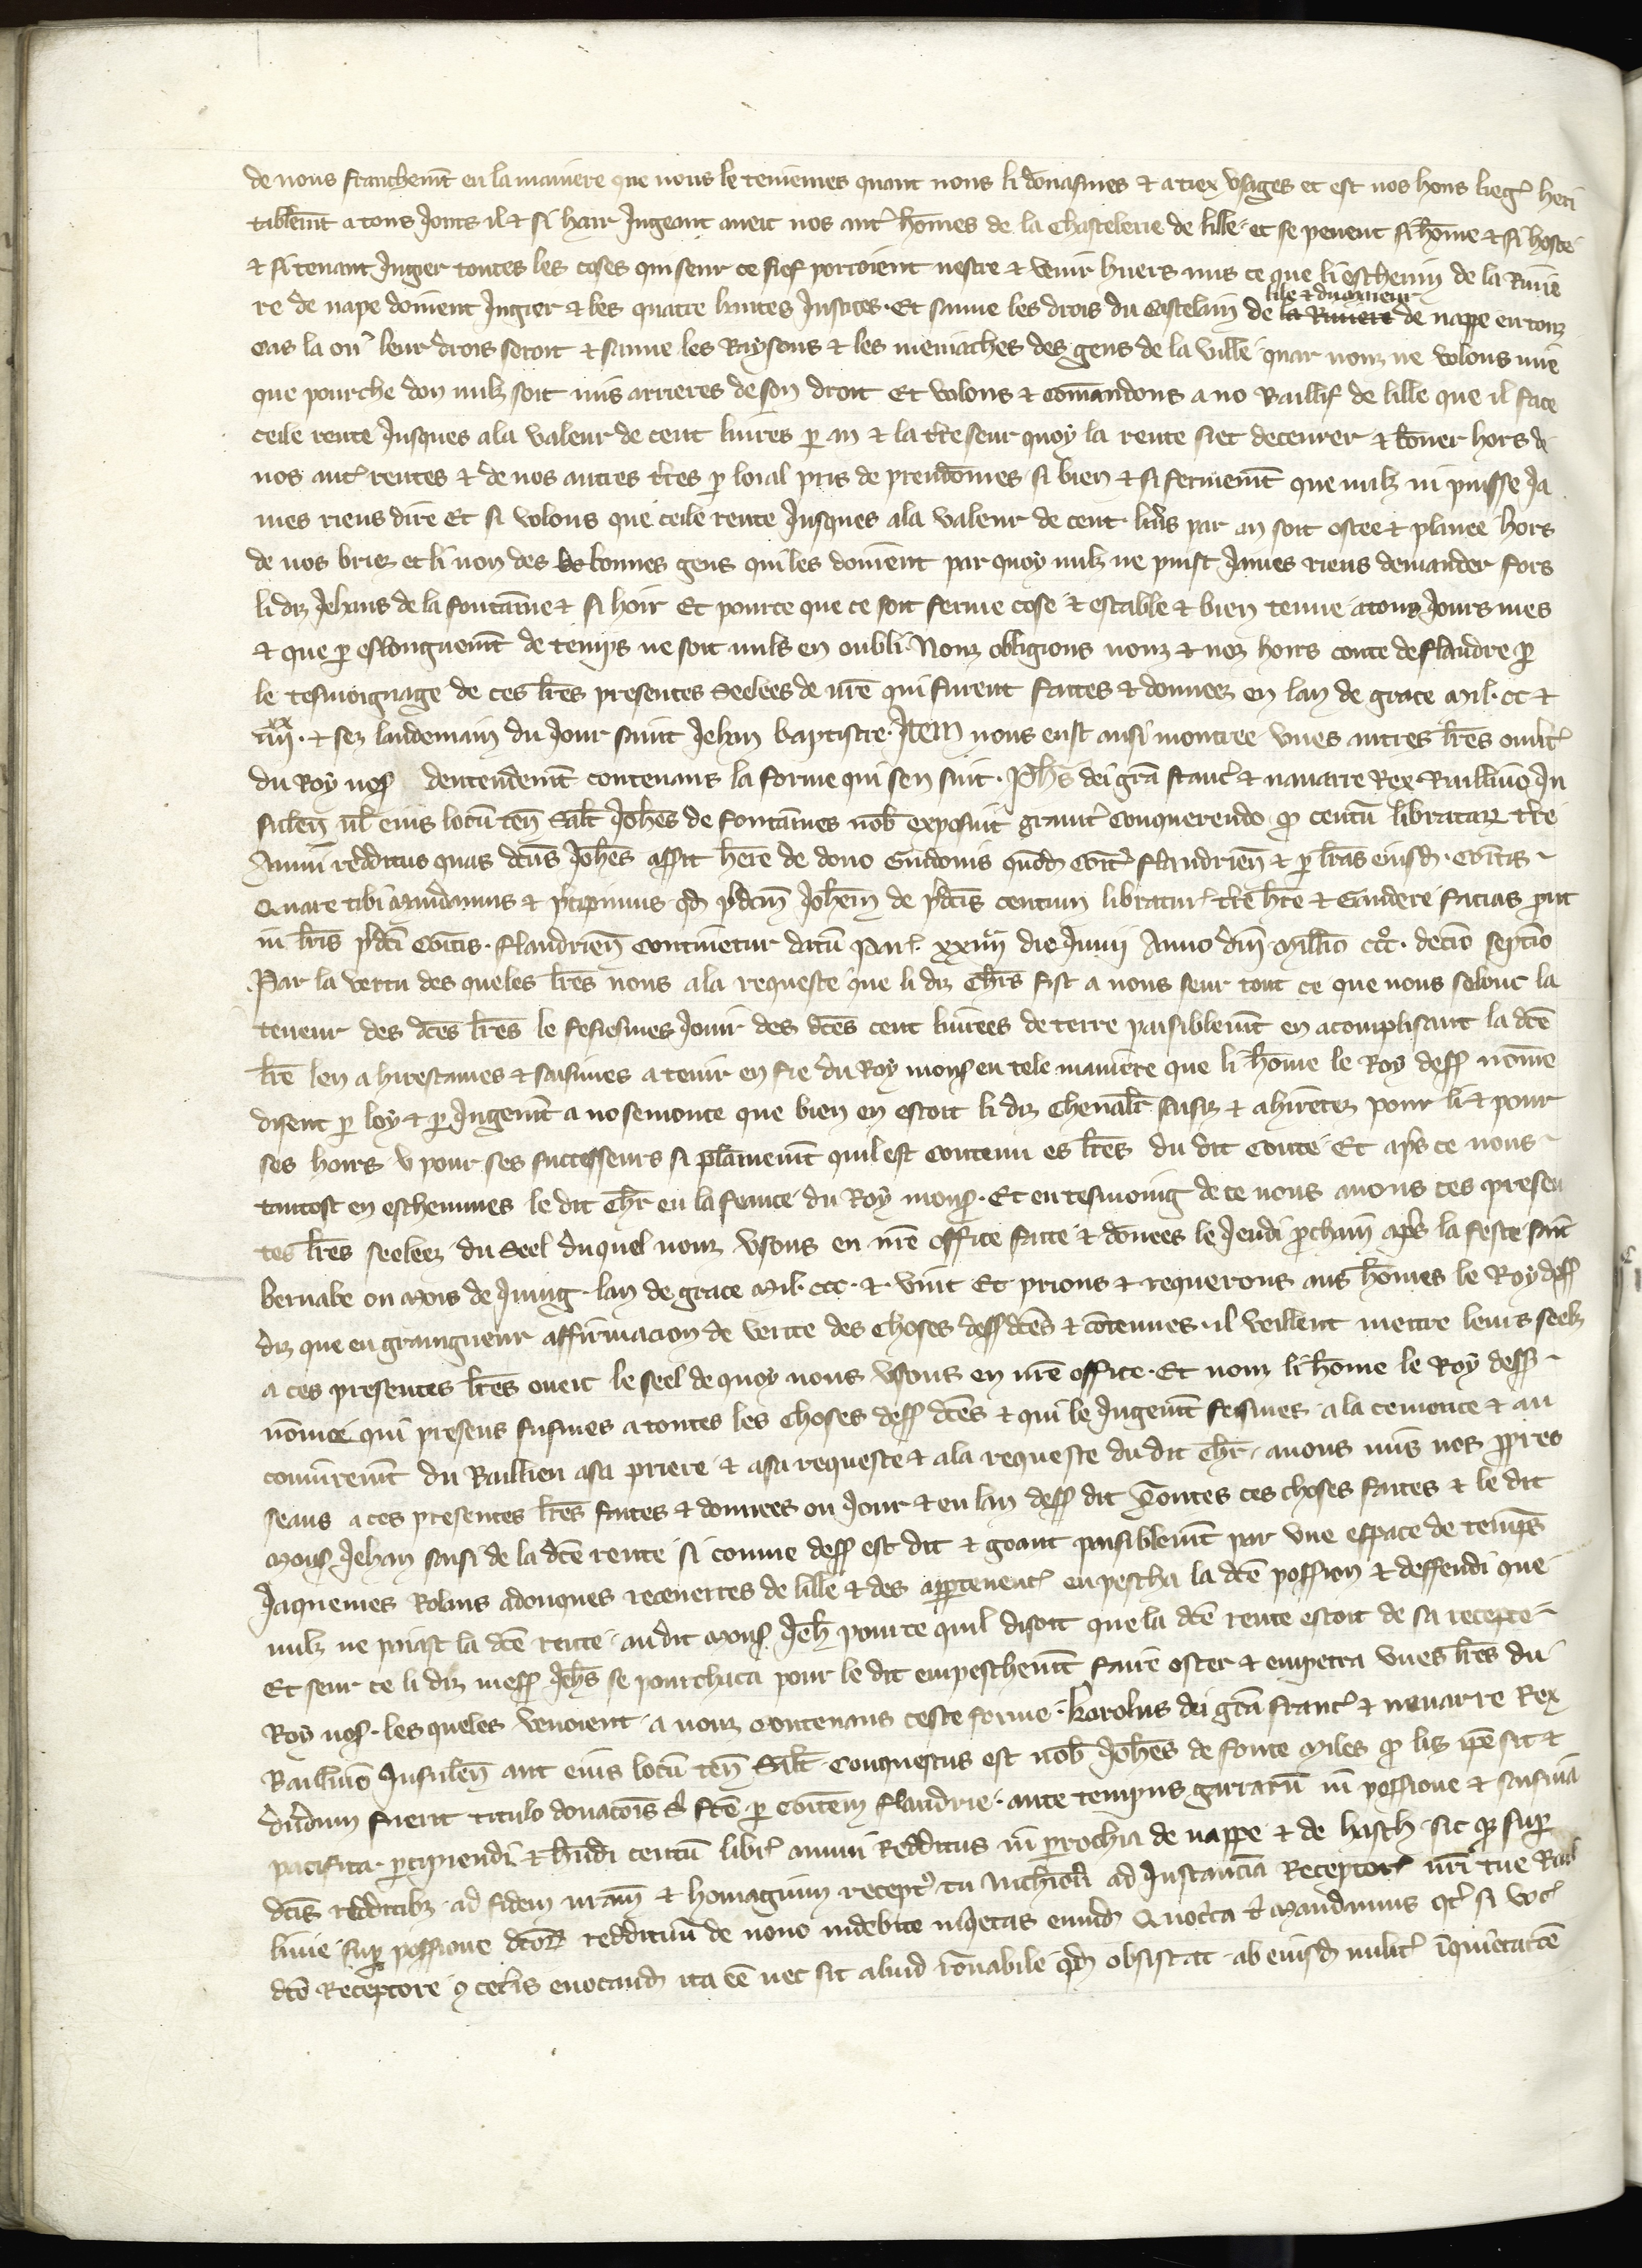 de nous franchemt en la maniere que nous le teniemes quant nous li donasmes & a tiex usages et est nos hons lieg heri
tablemt a tous jours il & si hair jugeant avec nos aut homes de la chastelerie de lille et se pevent si home & si hoste
& si tenant juger toutes les coses qui seur ce fief porroient nestre & venir hvers mis ce que li eschevin de la Rivie
re de nape doivent jugier & les quatre hautes justices. Et sauve les drois du castelain de la Riviere lile & du signeur de nappe en touz
cas la ou leur drois seroit & sauve les Raysons & les meniaches des gens de la ville quar nouz ne volons mie
que pourche don nulz soit mis arrieres de son droit Et volons & comandons a no Baillif de lille que il face
ceile rente jusques a la valeur de cent livres p an & la tre seur quoy la rente siet decevrer & boner hors de
nos aut rentes & de nos autres tres p loial pris de preudomes si bien & si fermemt que nulz ni puisse ja
mes riens dire Et si volons que ceile rente jusques a la valeur de cent livrs par an soit ostee & planee hors
de nos briez et li non des bonnes gens qui les doivent par quoy nulz ne puist james riens demander fors
li diz Jehans de la fontaine & si hoir Et pource que ce soit ferme cose & estable & bien tenue a touz jours mes
& que p eslonguemt de temps ne soit mis en oubli Nouz obligions nouz & noz hoirs conte de flandre p
le tesmoignage de ces lres presentes seelees de nre qui furent faites & donnees en lan de grace mil. cc &
iiij xx. & sez landemain du jour saint Jehan baptistre. Item nous eust ausi montree unes autres lres ouvt
du Roy nos dentendemt contenans la forme qui sen suit. Phs dei gra franc & navarre Rex Baillivo In
sulen vl eius locu ten Salt Johes de fontaines nob exposuit gravit conquerendo q centu librataru tre
Annui redditus quas dcus Johes assit here de dono Guidonis quod Comit flandrien & p lras eiusd. Comitis
Quare tibi mandamus & pcipimus qd pdcm Johem de pdcis centum libratar tre hre & Gaudere facias put
in lris pdci Comitis. flandrien continetur datu Par. xxiiij die Junij Anno dni Millio ccco. decio septio
Par la vertu des queles lres nous a la requeste que li diz chrs fist a nous seur tout ce que nous selonc la
teneur des dces lres le fesiesmes jouir des dces cent livrees de terre paisiblemt en acomplisant la dce
lre len ahirestames & saisimes a tenir en fie du Roy mons en tele maniere que li home le Roy dess nome
disent p loy & p jugemt a no semonce que bien en estoit li diz chevalr saisiz & ahiretez pour li & pour
ses hoirs u pour ses successeurs si plainemt quil est contenu es lres du dit conte Et aps ce nous
tantost en eschevimes le dit chr en la feaute du Roy mons. Et en tesmoing de ce nous avons ces presen
tes lres seelees du seel duquel nouz usons en nre office faite & donees le jeudi pchain aps la feste saint
bernabe ou mois de Juing lan de grace mil. ccc. & vint Et prions & requerons aus homes le Roy dess
diz que en graingneur affirmacion de verite des choses dess dces & contenues. il veillent mettre leurs seelz
a ces presentes lres avec le seel de quoy nous usons en nre office. Et nouz li home le Roy dess
nomei qui presens fusmes a toutes les choses dess dces & qui le jugemt fesimes a la cemonce & au
conjuremt du Baillieu a sa priere & a sa requeste & a la requeste du dit chr avons mis nos ppres
seaus a ces presentes lres faites & donnees ou jour & en lan dess dit Toutes ces choses faites & le dit
mons Jehan saisi de la dce rente si comme dess est dit & goant paisiblemt par une espace de temps
Jaquemes Rolins adonques receverres de lille & des appertenenc enpescha la dce possion & deffendi que
nulz ne paiast la dce rente au dit mons Jeh pource quil disoit que la dce rente estoit de sa recepte
Et seur ce li diz mess Jehs se pourchaca pour le dit empeschemt faire oster & empetra unes lres du
Roy nos. les queles venoient a nouz contenans ceste forme. Karolus dei gra franc & navarre Rex
Baillivo Insulen aut eius locu ten Salt Conquestus est nob Johes de fonte miles q licz ipe sit &
diu dum fuerit titulo donacois s fce p comitem flandrie. ante tempus guerraru in possione & saisina
pacifica pcipiendi & hndi centu libr annui Redditus in prochia de nappe & de hasch sic qz sup
dcis redditibz ad fidem nram & homagium recept tu nichilo ad Instancia Receptor nri tue Bail
livie sup possione dcoz reddituu de novo indebite inqetas eumd Quocca t mandamus qt si voc
dco Receptore & ceteris evocand ita ee nec sit aliud ronabile qd obsistat ab eiusd milit inquietacoe